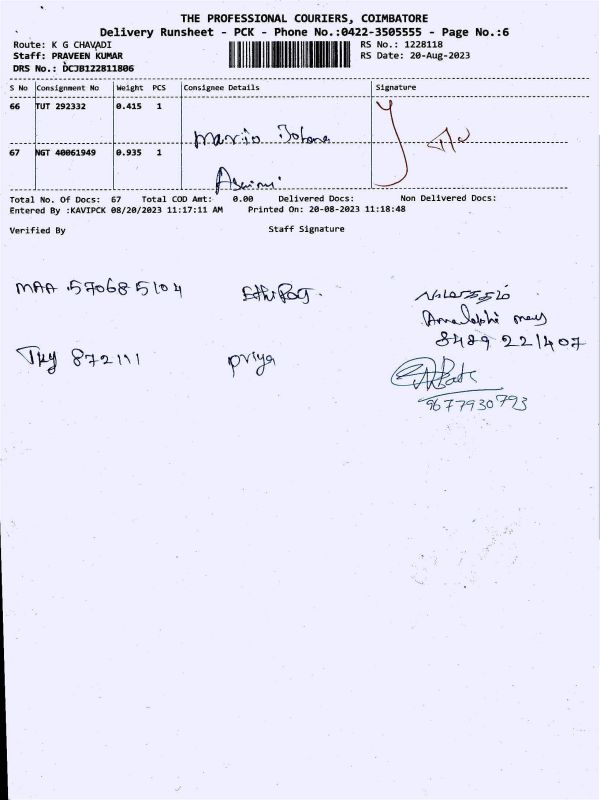 THE PROFESSIONAL COURIERS, COIMBATORE
Delivery Runsheet - PCK - Phone No.:0422-3505555 - Page No.:6
Route: K G CHAVADI
RS No.: 1228118
Staff: PRAVEEN KUMAR
RS Date: 20-Aug-2023
DRS No.: DCJB122811806
S No Consignment No Weight PCS Consignee Details Signature
66 TUT 292332 0.415 1
Mario Johana
67 NGT 40061949 0.935 1
Total No. Of Docs: 67 Total COD Amt: 0.00 Delivered Docs: Non Delivered Docs:
Entered By :KAVIPCK 08/20/2023 11:17:11 AM Printed On: 20-08-2023 11:18:48
Verified By Staff Signature
MAA 570685104
8489 221407
872111 priya
9677930793